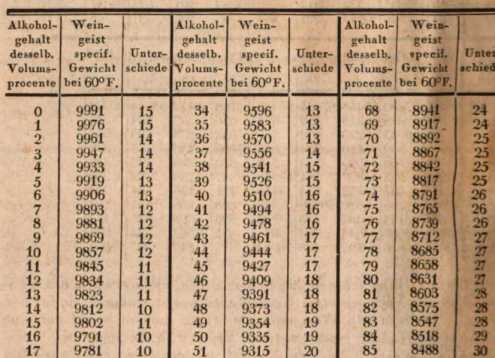 Alkohol- Wein- Alkohol- Wein- Alkohol- Wein-
gehalt geist gehalt geist gehalt geist
desselb. specif. Unter- desselb. specif. Unter- desselb. specif. Unter
Volums- Gewicht schiede Volums- Gewicht schiede Volums- Gewicht schied
procente bei 60°F. procente bei 60°F. procente bei 60°F.
0 9991 15 34 9596 13 68 8941 24
1 9976 15 35 9583 13 69 8917 24
2 9961 14 36 9570 13 70 8892 25
3 9947 14 37 9556 14 71 8867 25
4 9933 14 38 9541 15 72 8842 25
5 9919 13 39 9526 15 73 8817 25
6 9906 13 40 9510 16 74 8791 26
7 9893 12 41 9494 16 75 8765 26
8 9881 12 42 9478 16 76 8739 26
9 9869 12 43 9461 17 77 8712 27
10 9857 12 44 9444 17 78 8685 27
11 9845 11 45 9427 17 79 8658 27
12 9834 11 46 9409 18 80 8631 27
13 9823 11 47 9391 18 81 8603 28
14 9812 10 48 9373 18 82 8575 28
15 9802 11 49 9354 19 83 8547 28
16 9791 10 50 9335 19 84 8518 29
17 9781 10 51 9315 20 85 8488 30